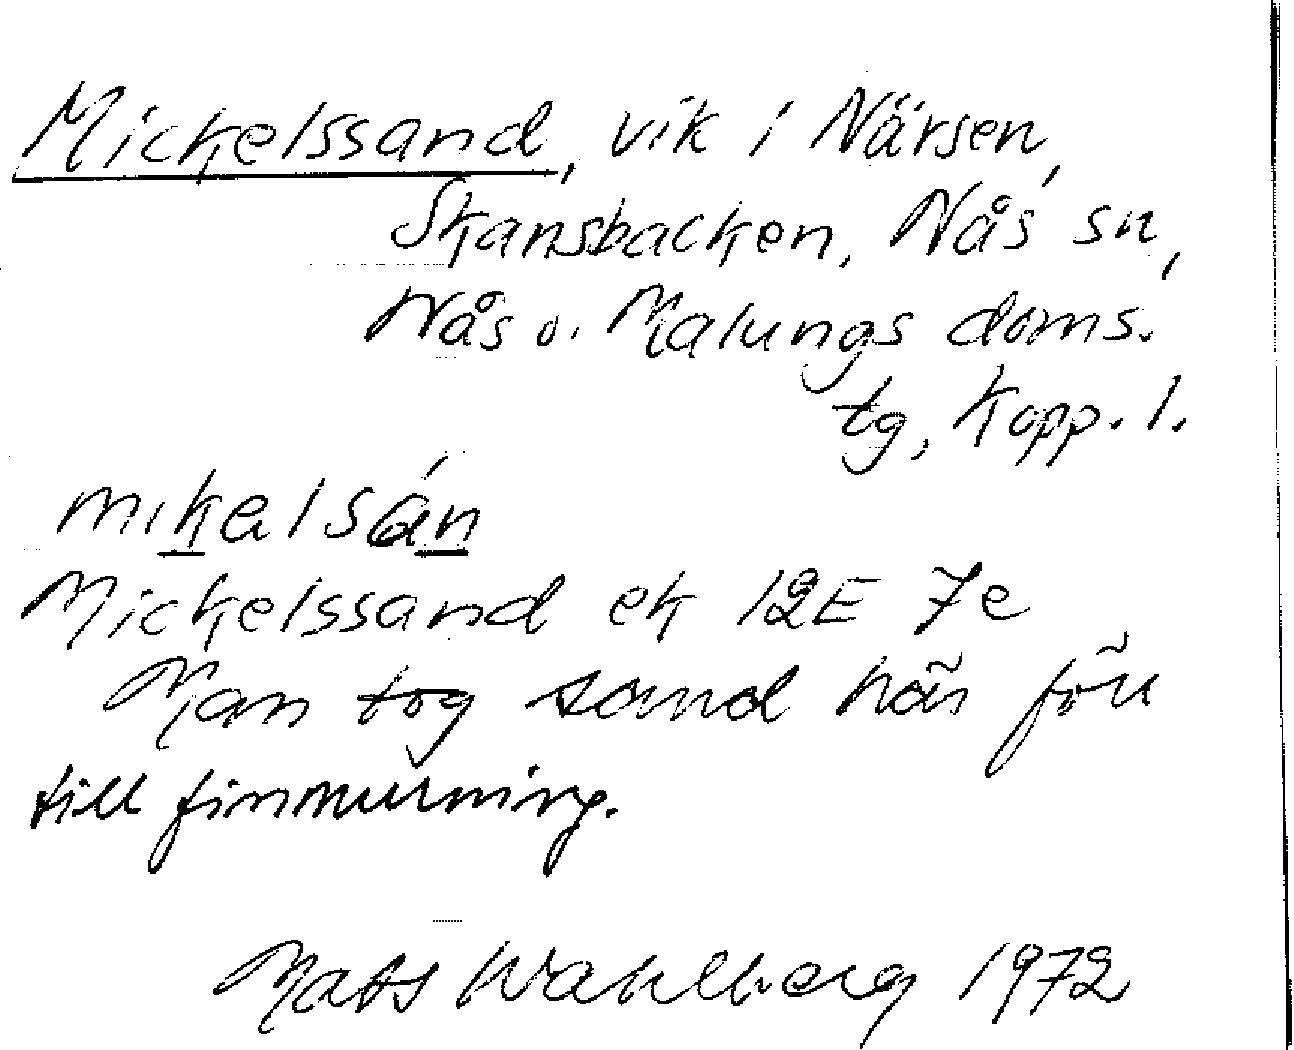 Mickelssand, vik i Närsen,
Skansbacken, Nås sn,
Nås o. Malungs doms.
tg, Kopp. l.
mikəlsán
Mickelssand ek 12E 7e
Man tog sand här förr
till finmurning.
Mats Wahlberg 1972